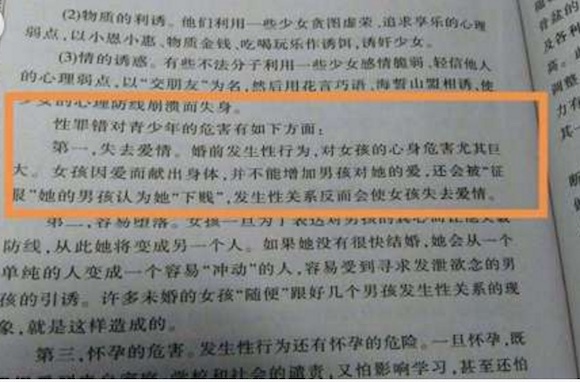 (2)物质的利诱。他们利用一些少女贪图虚荣、追求享乐的心理
弱点，以小恩小惠、物质金钱、吃喝玩乐作诱饵，诱奸少女。
(3)情的诱惑。有些不法分子利用一些少女感情脆弱、轻信他人
的心理弱点，以“交朋友”为名，然后用花言巧语、海誓山盟相诱，使
少女的心理防线崩溃而失身。
性罪错对青少年的危害有如下方面：
第一，失去爱情。婚前发生性行为，对女孩的心身危害尤其巨
大。女孩因爱而献出身体，并不能增加男孩对她的爱，还会被“征
服”她的男孩认为她“下贱”，发生性关系反而会使女孩失去爱情。
第二，容易堕落。女孩一旦为了表达对男孩的真心而让他突破
防线，从此她将变成另一个人。如果她没有很快结婚，她会从一个
单纯的人变成一个容易“冲动”的人，容易受到寻求发泄欲念的男
孩的引诱。许多未婚的女孩“随便”跟好几个男孩发生性关系的现
象，就是这样造成的。
第三，怀孕的危害。发生性行为还有怀孕的危险。一旦怀孕，既
学校和社会的谴责，又怕影响学习，甚至还怕
随
音盆的
及各种
高。
调整
力有
其
断